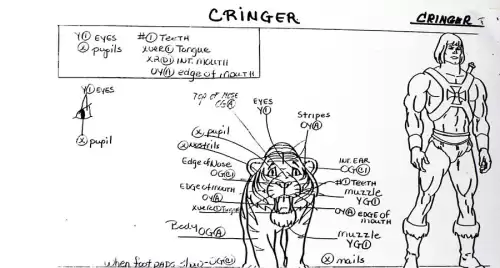 CRINGER
CRINGER
Y① EYES
ⓧ pupils
#① TEETH
XVER① Tongue
INT. MOUTH
OYⒶ edge of MOUTH
Y① EYES
ⓧ pupil
TOP OF NOSE
OGⒶ
EYES
Y①
Stripes
OYⒶ
ⓧ pupil
ⓧ nostrils
Edge of Nose
OGⒸ①
INT. EAR
OGⒸ①
#① TEETH
muzzle
YG①
Edge of mouth
OYⒶ
Tongue
OYⒶ EDGE OF
MOUTH
Body
OGⒶ
muzzle
YG①
ⓧ nails
when foot pads show